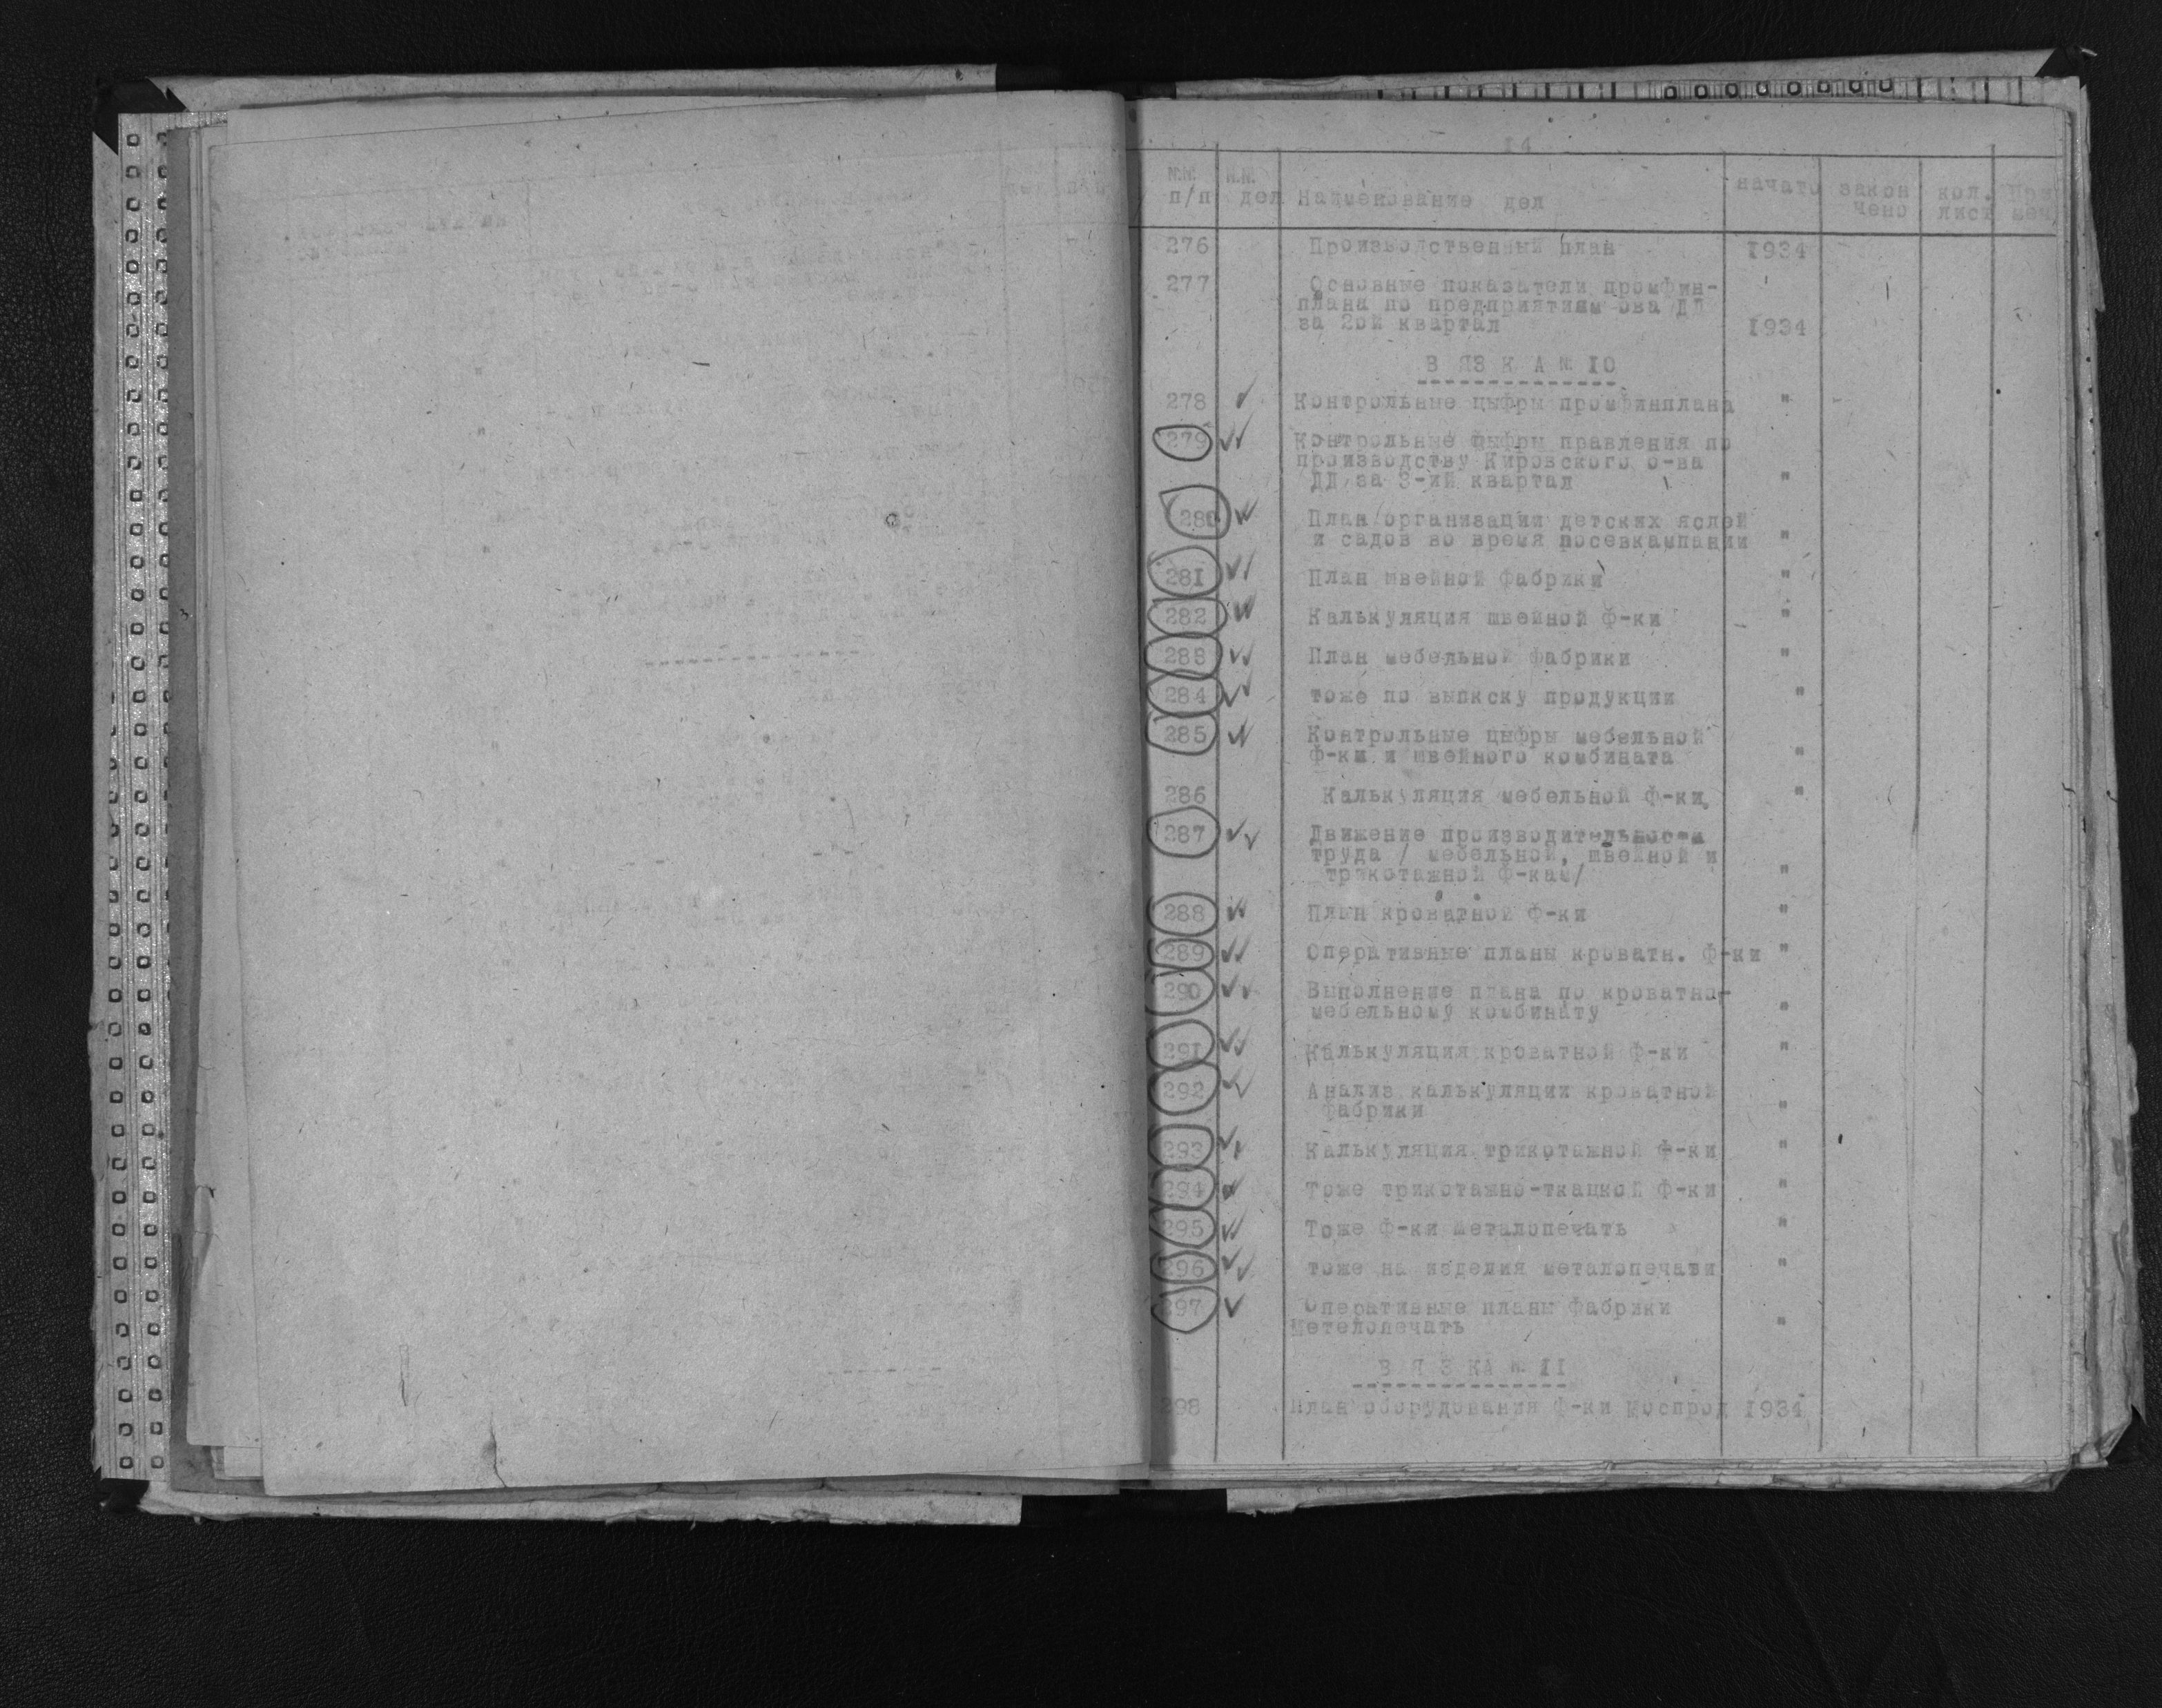 14
№№ п/п №№ дел Наименование дел начато закон чено кол. лист При меч
276 Производственный план 1934
277 Основные показатели промфин-
плана по предприятиям ова ДД
за 2ой квартал 1934
В ЯЗ К А № 10
278 Контрольные цыфры промфинплана "
279 Контрольные цыфры правления по
производству Кировского о-ва
ДД за 3-ий квартал "
280 План организации детских яслей
и садов во время посевкампании "
281 План швейной фабрики "
282 Калькуляция швейной ф-ки "
283 План мебельной фабрики "
284 тоже по выпкску продукции "
285 Контрольные цыфры мебельной
ф-ки и швейного комбината "
286 Калькуляция мебельной ф-ки, "
287 Движение производительности
труда / мебельной, швейной и
трикотажной ф-кам/ "
288 План кроватной ф-ки "
289 Оперативные планы кроватн. ф-ки "
290 Выполнение плана по кроватно-
мебельному комбинату "
291 Калькуляция кроватной ф-ки "
292 Анализ калькуляции кроватной
фабрики "
293 Калькуляция трикотажной ф-ки "
294 Тоже трикотажно-ткацкой ф-ки "
295 Тоже ф-ки металопечать "
296 тоже на изделия металопечати "
297 Оперативные планы фабрики
Метелопечать "
В Я З КА № 11
298 План оборудования ф-ки Моспрод 1934